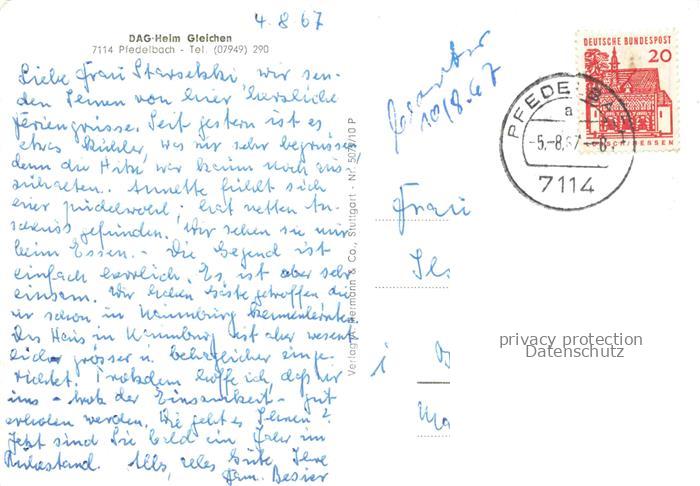 4.8.67
DAG-Heim Gleichen
7114 Pfedelbach - Tel. (07949) 290
Liebe Frau wir sen-
den Ihnen von hier herzliche
Feriengrüsse. Seit gestern ist es
etwas kühler, was wir sehr begrüssen,
denn die Hitze war kaum noch aus
zuhalten. Annette fühlt sich
hier pudelwohl; hat netten An-
schluss gefunden. Wir sehen sie nur
beim Essen. - Die Gegend ist
einfach herrlich. Es ist aber sehr
einsam. Wir haben Gäste getroffen die
wir schon in Naumburg kennenlernten.
Das Haus in Naumburg ist aber wesent
licher grösser u. behaglicher einge-
richtet. Trotzdem hoffe ich, daß wir
uns - trotz der Einsamkeit - gut
erholen werden. Wie geht es Ihnen?
Jetzt sind Sie bald ein Jahr im
Ruhestand. Alles, alles Gute, Ihre
Fam. Besier
Verlag A. Hermann & Co., Stuttgart - Nr. 10 P
10/8.67
DEUTSCHE BUNDESPOST
20
PFEDELBACH
a
-5.-8.67-8
7114
Frau
Ils
i
Ma
privacy protection
Datenschutz